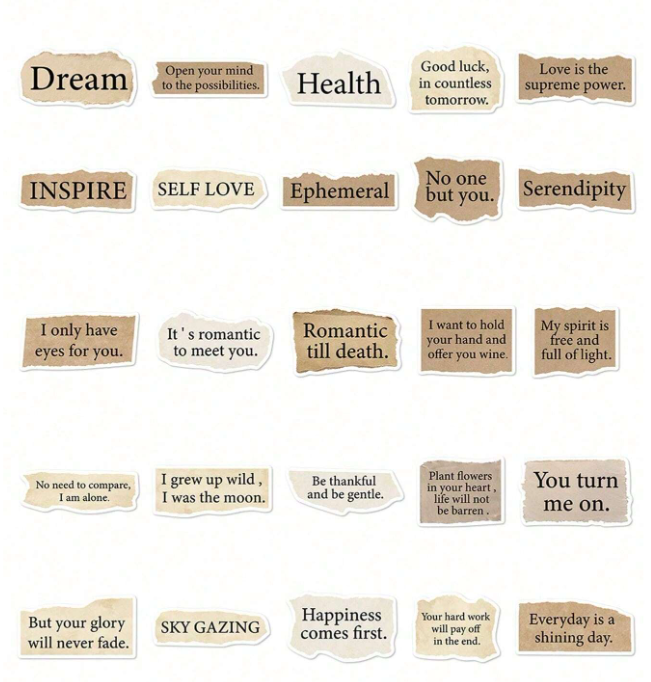 Dream
Open your mind
to the possibilities.
Health
Good luck,
in countless
tomorrow.
Love is the
supreme power.
INSPIRE
SELF LOVE
Ephemeral
No one
but you.
Serendipity
I only have
eyes for you.
It ' s romantic
to meet you.
Romantic
till death.
I want to hold
your hand and
offer you wine.
My spirit is
free and
full of light.
No need to compare,
I am alone.
I grew up wild ,
I was the moon.
Be thankful
and be gentle.
Plant flowers
in your heart ,
life will not
be barren .
You turn
me on.
But your glory
will never fade.
SKY GAZING
Happiness
comes first.
Your hard work
will pay off
in the end.
Everyday is a
shining day.